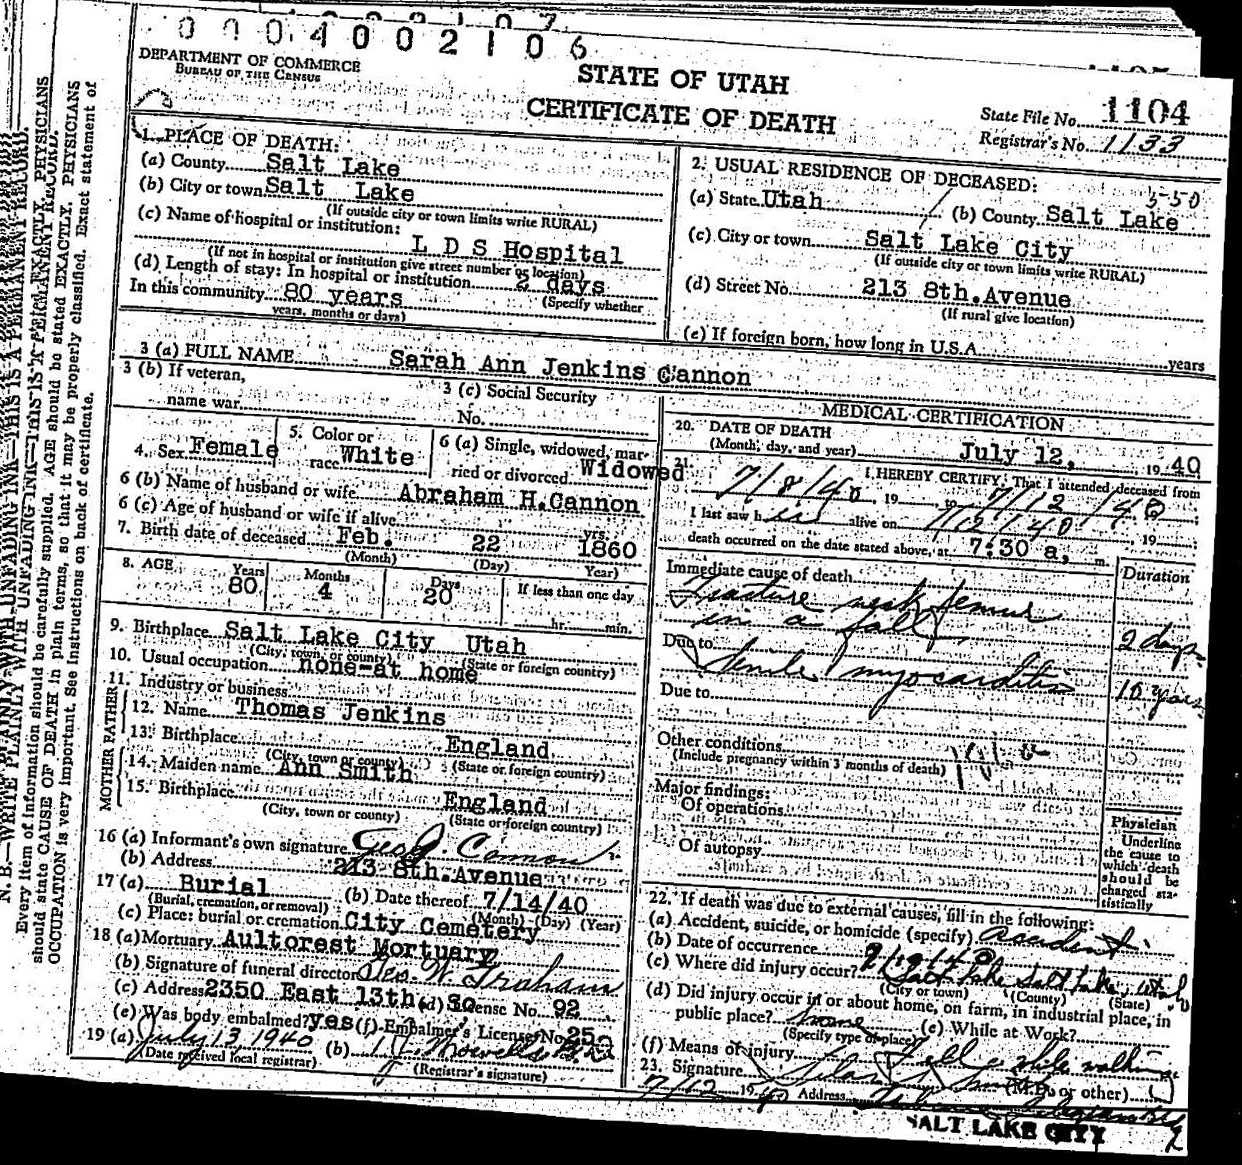 0004002106
DEPARTMENT OF COMMERCE
BUREAU OF THE CENSUS
STATE OF UTAH
CERTIFICATE OF DEATH
State File No. 1104
Registrar's No. 1133
1. PLACE OF DEATH:
(a) County Salt Lake
(b) City or town Salt Lake
(If outside city or town limits write RURAL)
(c) Name of hospital or institution:
L D S Hospital
(If not in hospital or institution give street number or location)
(d) Length of stay: In hospital or institution 2 days
In this community 80 years (Specify whether
years, months or days)
2. USUAL RESIDENCE OF DECEASED:
(a) State Utah (b) County Salt Lake
(c) City or town Salt Lake City
(If outside city or town limits write RURAL)
(d) Street No. 213 8th.Avenue
(If rural give location)
(e) If foreign born, how long in U.S.A. years
3 (a) FULL NAME Sarah Ann Jenkins Cannon
3 (b) If veteran,
name war
3 (c) Social Security
No.
4. Sex Female
5. Color or
race White
6 (a) Single, widowed, mar-
ried or divorced Widowed
6 (b) Name of husband or wife Abraham H.Cannon
6 (c) Age of husband or wife if alive yrs.
7. Birth date of deceased Feb. 22 1860
(Month) (Day) Year)
8. AGE Years 80 Months 4 Days 20 If less than one day
hr. min.
9. Birthplace Salt Lake City Utah
(City, town, or county) (State or foreign country)
10. Usual occupation none-at home
11. Industry or business
FATHER
12. Name Thomas Jenkins
13. Birthplace England
(City, town or county) (State or foreign country)
MOTHER
14. Maiden name Ann Smith
15. Birthplace England
(City, town or county) (State or foreign country)
16 (a) Informant's own signature Geo J Cannon
(b) Address 213 8th.Avenue
17 (a) Burial (b) Date thereof 7/14/40
(Burial, cremation, or removal) (Month) (Day) (Year)
(c) Place: burial or cremation City Cemetery
18 (a) Mortuary Aultorest Mortuary
(b) Signature of funeral director
(c) Address 2350 East 13th. So (d) License No. 92
(e) Was body embalmed? yes (f) Embalmer's License No.
19 (a) July 13 1940 (b)
(Date received local registrar) (Registrar's signature)
MEDICAL CERTIFICATION
20. DATE OF DEATH
(Month, day, and year) July 12, 19 40
21. I HEREBY CERTIFY, That I attended deceased from
7/8/40, 19 to 7/12/40
I last saw h er alive on 7/12/40, 19
death occurred on the date stated above, at 7:30 a, m.
Immediate cause of death Duration
Fracture neck femur
in a fall 2 days
Due to Senile myocarditis 10 years
Due to
Other conditions
(Include pregnancy within 3 months of death)
Major findings:
Of operations
Of autopsy
Physician
Underline
the cause to
which death
should be
charged sta-
tistically
22. If death was due to external causes, fill in the following:
(a) Accident, suicide, or homicide (specify) accident
(b) Date of occurrence
(c) Where did injury occur? Salt Lake Salt Lake, Utah
(City or town) (County) (State)
(d) Did injury occur in or about home, on farm, in industrial place, in
public place? home (e) While at Work?
(Specify type of place)
(f) Means of injury Fell while walking
23. Signature (M.D. or other)
7/12 1940 Address
SALT LAKE CITY
N. B.—WRITE PLAINLY WITH UNFADING INK—THIS IS A PERMANENT RECORD.
Every item of information should be carefully supplied. AGE should be stated EXACTLY. PHYSICIANS
should state CAUSE OF DEATH in plain terms, so that it may be properly classified. Exact statement of
OCCUPATION is very important. See Instructions on back of certificate.